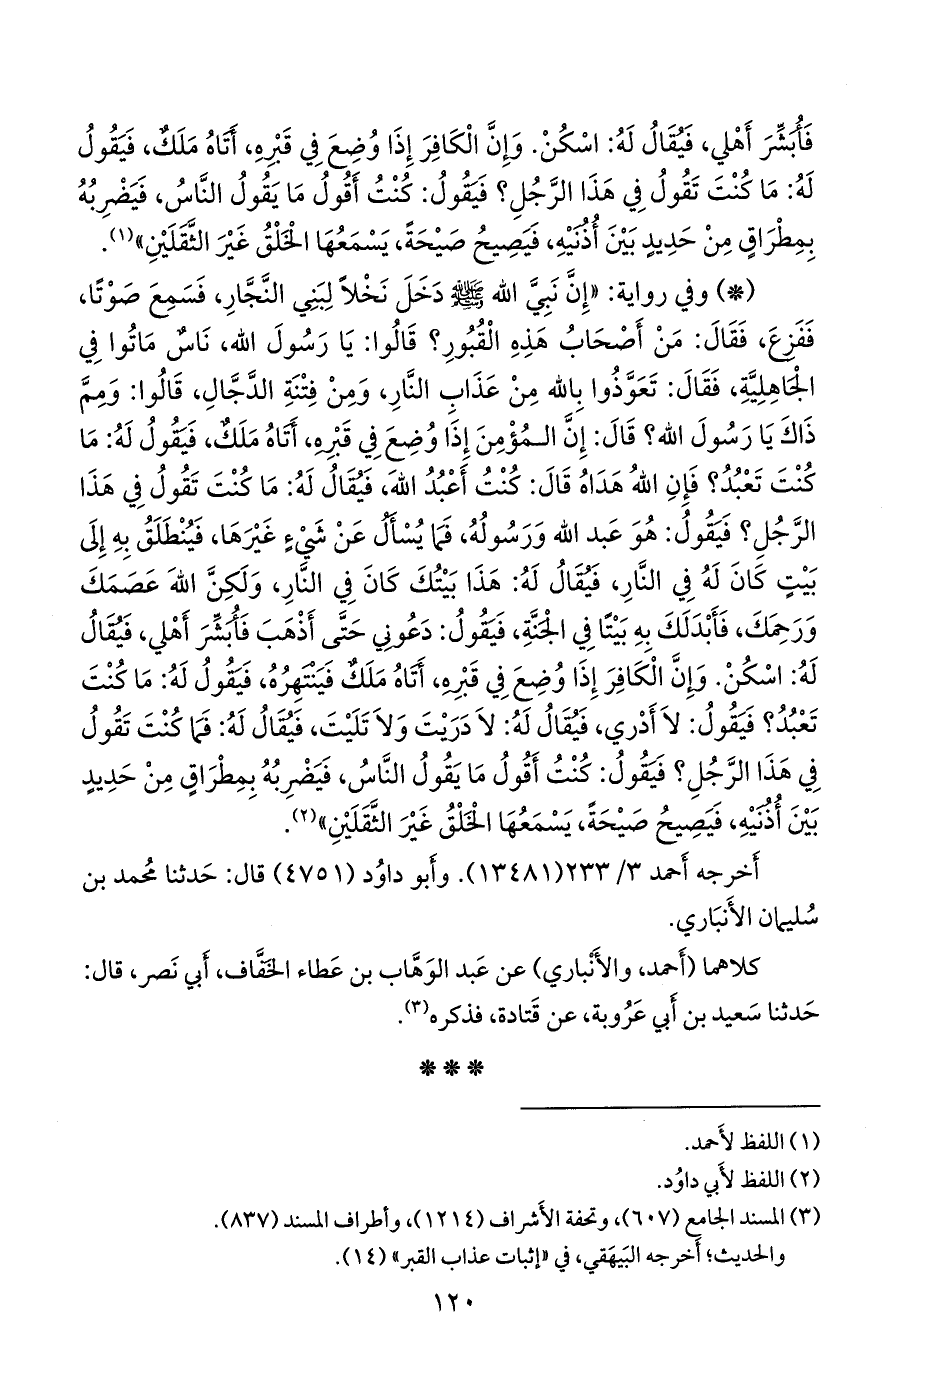 فَأُبَشِّرَ أَهْلِي، فَيُقَالُ لَهُ: اسْكُنْ. وَإِنَّ الْكَافِرَ إِذَا وُضِعَ فِي قَبْرِهِ، أَتَاهُ مَلَكٌ، فَيَقُولُ
لَهُ: مَا كُنْتَ تَقُولُ فِي هَذَا الرَّجُلِ؟ فَيَقُولُ: كُنْتُ أَقُولُ مَا يَقُولُ النَّاسُ، فَيَضْرِبُهُ
بِمِطْرَاقٍ مِنْ حَدِيدٍ بَيْنَ أُذُنَيْهِ، فَيَصِيحُ صَيْحَةً، يَسْمَعُهَا الْخَلْقُ غَيْرَ الثَّقَلَيْنِ»(١).
(*) وفي رواية: «إِنَّ نَبِيَّ الله ﷺ دَخَلَ نَخْلاً لِبَنِي النَّجَّارِ، فَسَمِعَ صَوْتًا،
فَفَزِعَ، فَقَالَ: مَنْ أَصْحَابُ هَذِهِ الْقُبُورِ؟ قَالُوا: يَا رَسُولَ الله، نَاسٌ مَاتُوا فِي
الْجَاهِلِيَّةِ، فَقَالَ: تَعَوَّذُوا بِالله مِنْ عَذَابِ النَّارِ، وَمِنْ فِتْنَةِ الدَّجَّالِ، قَالُوا: وَمِمَّ
ذَاكَ يَا رَسُولَ الله؟ قَالَ: إِنَّ الـمُؤْمِنَ إِذَا وُضِعَ فِي قَبْرِهِ، أَتَاهُ مَلَكٌ، فَيَقُولُ لَهُ: مَا
كُنْتَ تَعْبُدُ؟ فَإِنِ اللهُ هَدَاهُ قَالَ: كُنْتُ أَعْبُدُ اللهَ، فَيُقَالُ لَهُ: مَا كُنْتَ تَقُولُ فِي هَذَا
الرَّجُلِ؟ فَيَقُولُ: هُوَ عَبد الله وَرَسُولُهُ، فَمَا يُسْأَلُ عَنْ شَيْءٍ غَيْرَهَا، فَيُنْطَلَقُ بِهِ إِلَى
بَيْتٍ كَانَ لَهُ فِي النَّارِ، فَيُقَالُ لَهُ: هَذَا بَيْتُكَ كَانَ فِي النَّارِ، وَلَكِنَّ اللهَ عَصَمَكَ
وَرَحِمَكَ، فَأَبْدَلَكَ بِهِ بَيْتًا فِي الْجَنَّةِ، فَيَقُولُ: دَعُونِي حَتَّى أَذْهَبَ فَأُبَشِّرَ أَهْلِي، فَيُقَالُ
لَهُ: اسْكُنْ. وَإِنَّ الْكَافِرَ إِذَا وُضِعَ فِي قَبْرِهِ، أَتَاهُ مَلَكٌ فَيَنْتَهِرُهُ، فَيَقُولُ لَهُ: مَا كُنْتَ
تَعْبُدُ؟ فَيَقُولُ: لاَ أَدْرِي، فَيُقَالُ لَهُ: لاَ دَرَيْتَ وَلاَ تَلَيْتَ، فَيُقَالُ لَهُ: فَمَا كُنْتَ تَقُولُ
فِي هَذَا الرَّجُلِ؟ فَيَقُولُ: كُنْتُ أَقُولُ مَا يَقُولُ النَّاسُ، فَيَضْرِبُهُ بِمِطْرَاقٍ مِنْ حَدِيدٍ
بَيْنَ أُذُنَيْهِ، فَيَصِيحُ صَيْحَةً، يَسْمَعُهَا الْخَلْقُ غَيْرَ الثَّقَلَيْنِ»(٢).
أَخرجه أَحمد ٣/ ٢٣٣(١٣٤٨١). وأَبو داوُد (٤٧٥١) قال: حَدثنا مُحمد بن
سُليمان الأَنبَاري.
كلاهما (أَحمد، والأَنْباري) عن عَبد الوَهَّاب بن عَطاء الخَفَّاف، أَبي نَصر، قال:
حَدثنا سَعيد بن أَبي عَرُوبة، عن قَتادة، فذكره(٣).
* * *
(١) اللفظ لأَحمد.
(٢) اللفظ لأَبي داوُد.
(٣) المسند الجامع (٦٠٧)، وتحفة الأَشراف (١٢١٤)، وأَطراف المسند (٨٣٧).
والحديث؛ أَخرجه البَيهَقي، في «إثبات عذاب القبر» (١٤).
١٢٠